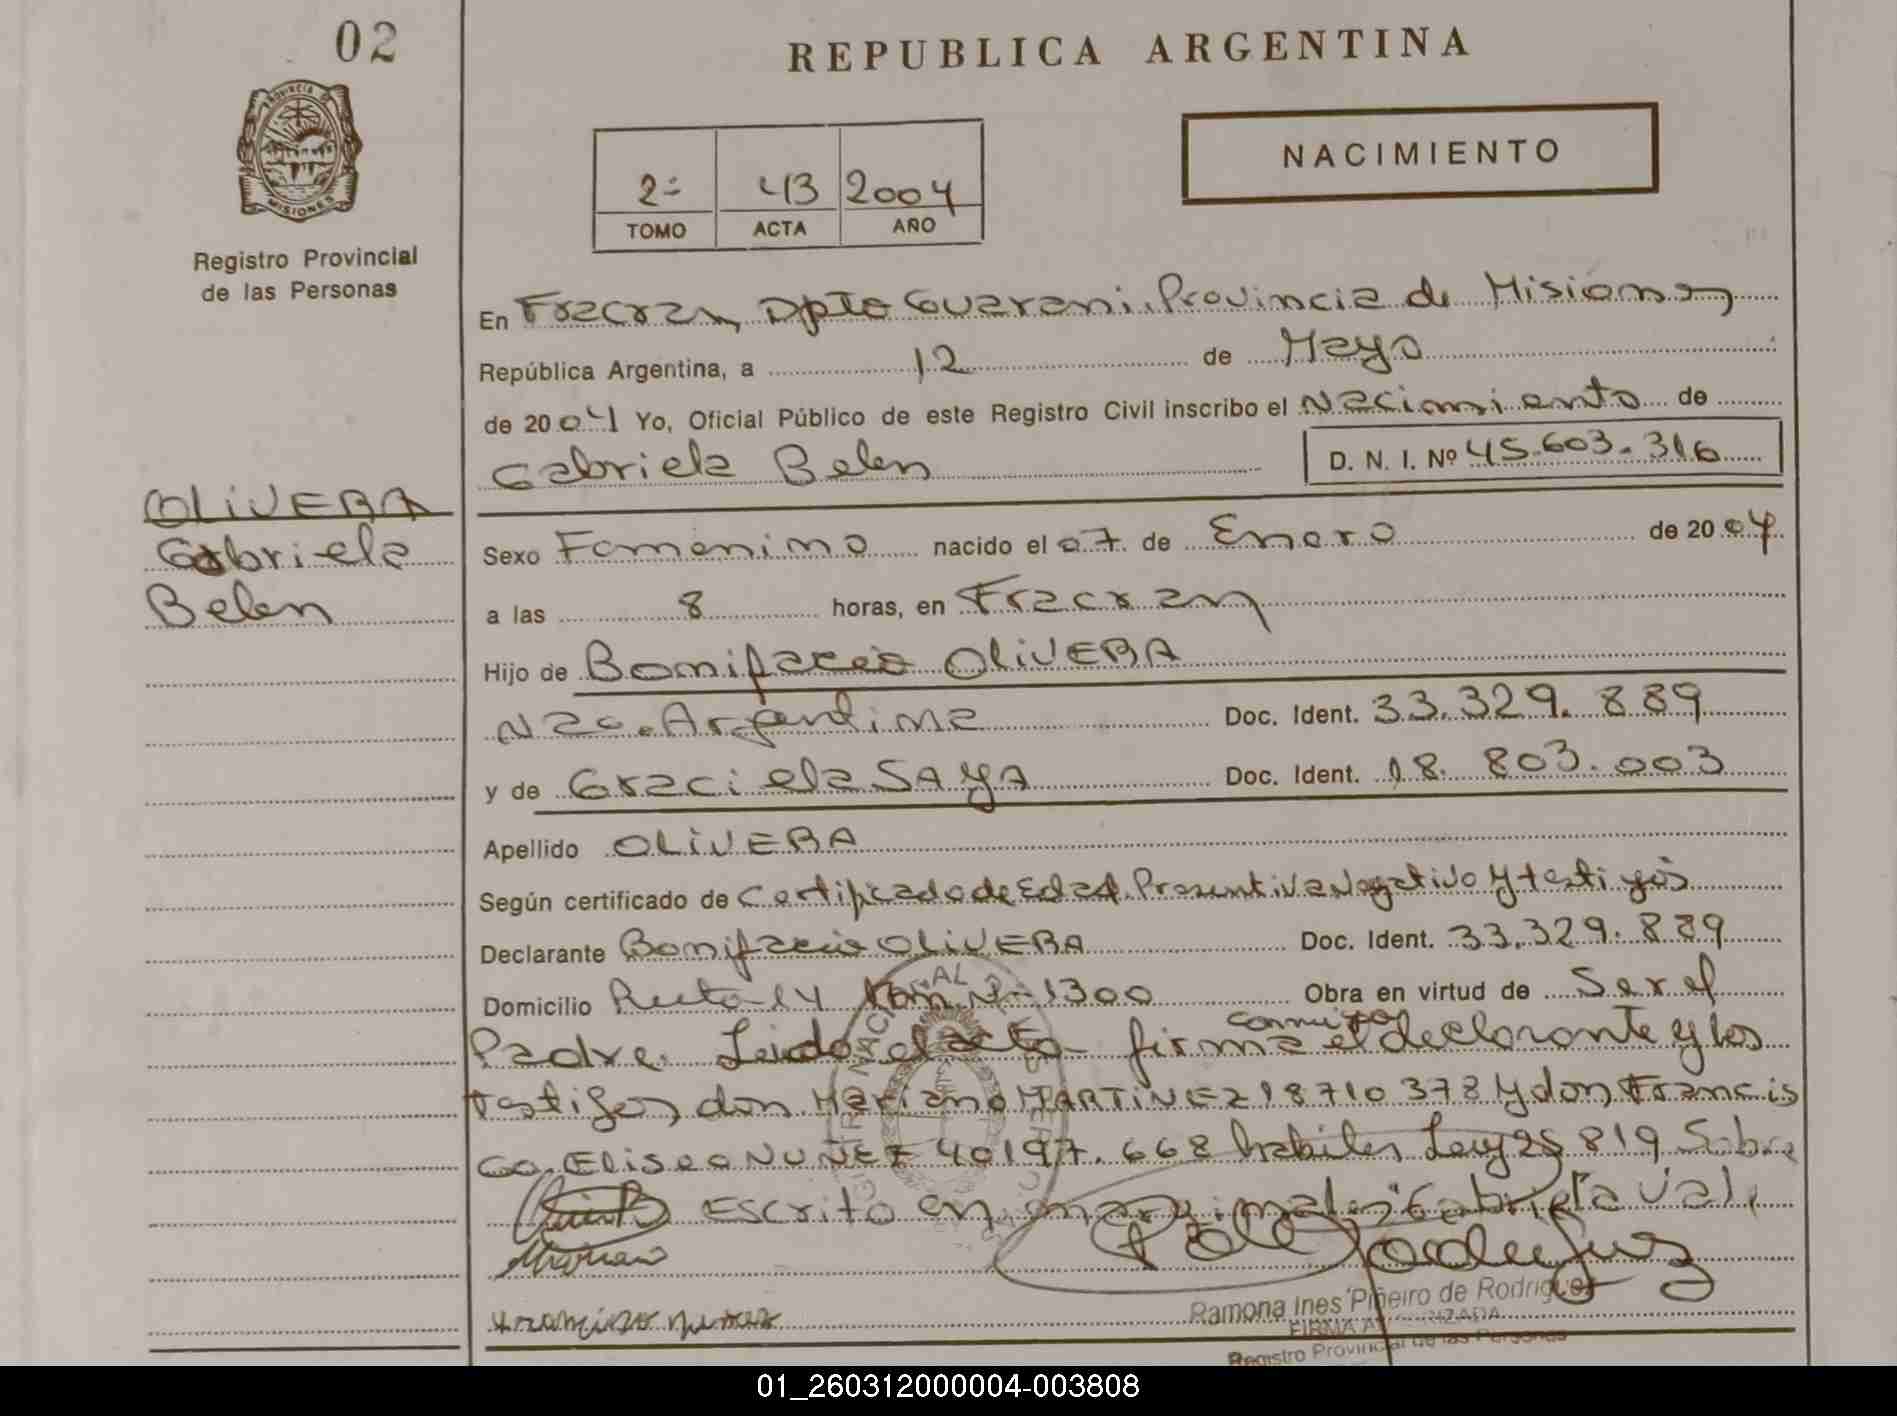 02
REPUBLICA ARGENTINA
PROVINCIA DE
MISIONES
Registro Provincial
de las Personas
2º 43 2004
TOMO ACTA AÑO
NACIMIENTO
En Fracran, Dpto Guarani, Provincia de Misiones
República Argentina, a 12 de Mayo
de 2004 Yo, Oficial Público de este Registro Civil inscribo el Nacimiento de
Gabriela Belen D. N. I. Nº 45.603.316
OLIVERA
Gabriela
Belen
Sexo Femenino nacido el 07 de Enero de 2004
a las 8 horas, en Fracran
Hijo de Bonifacio OLIVERA
Nac. Argentina Doc. Ident. 33.329.889
y de Graciela SAYA Doc. Ident. 18.803.003
Apellido OLIVERA
Según certificado de Certificado de Edad Presuntiva Negativo y testigos
Declarante Bonifacio OLIVERA Doc. Ident. 33.329.889
Domicilio Ruta 14 Km Nº 1300 Obra en virtud de Ser el
Padre. Leido el acta firma conmigo el declarante y los
testigos, don Mariano MARTINEZ 18710 378 y don Francis
co Eliseo NUÑEZ 40197.668 habiles Ley 25 819 Sobre
Escrito en marginales "Gabriela vale
Mariano
francisco nunez
Ramona Ines Piñeiro de Rodriguez
FIRMA AUTORIZADA
Registro Provincial de las Personas
01_260312000004-003808